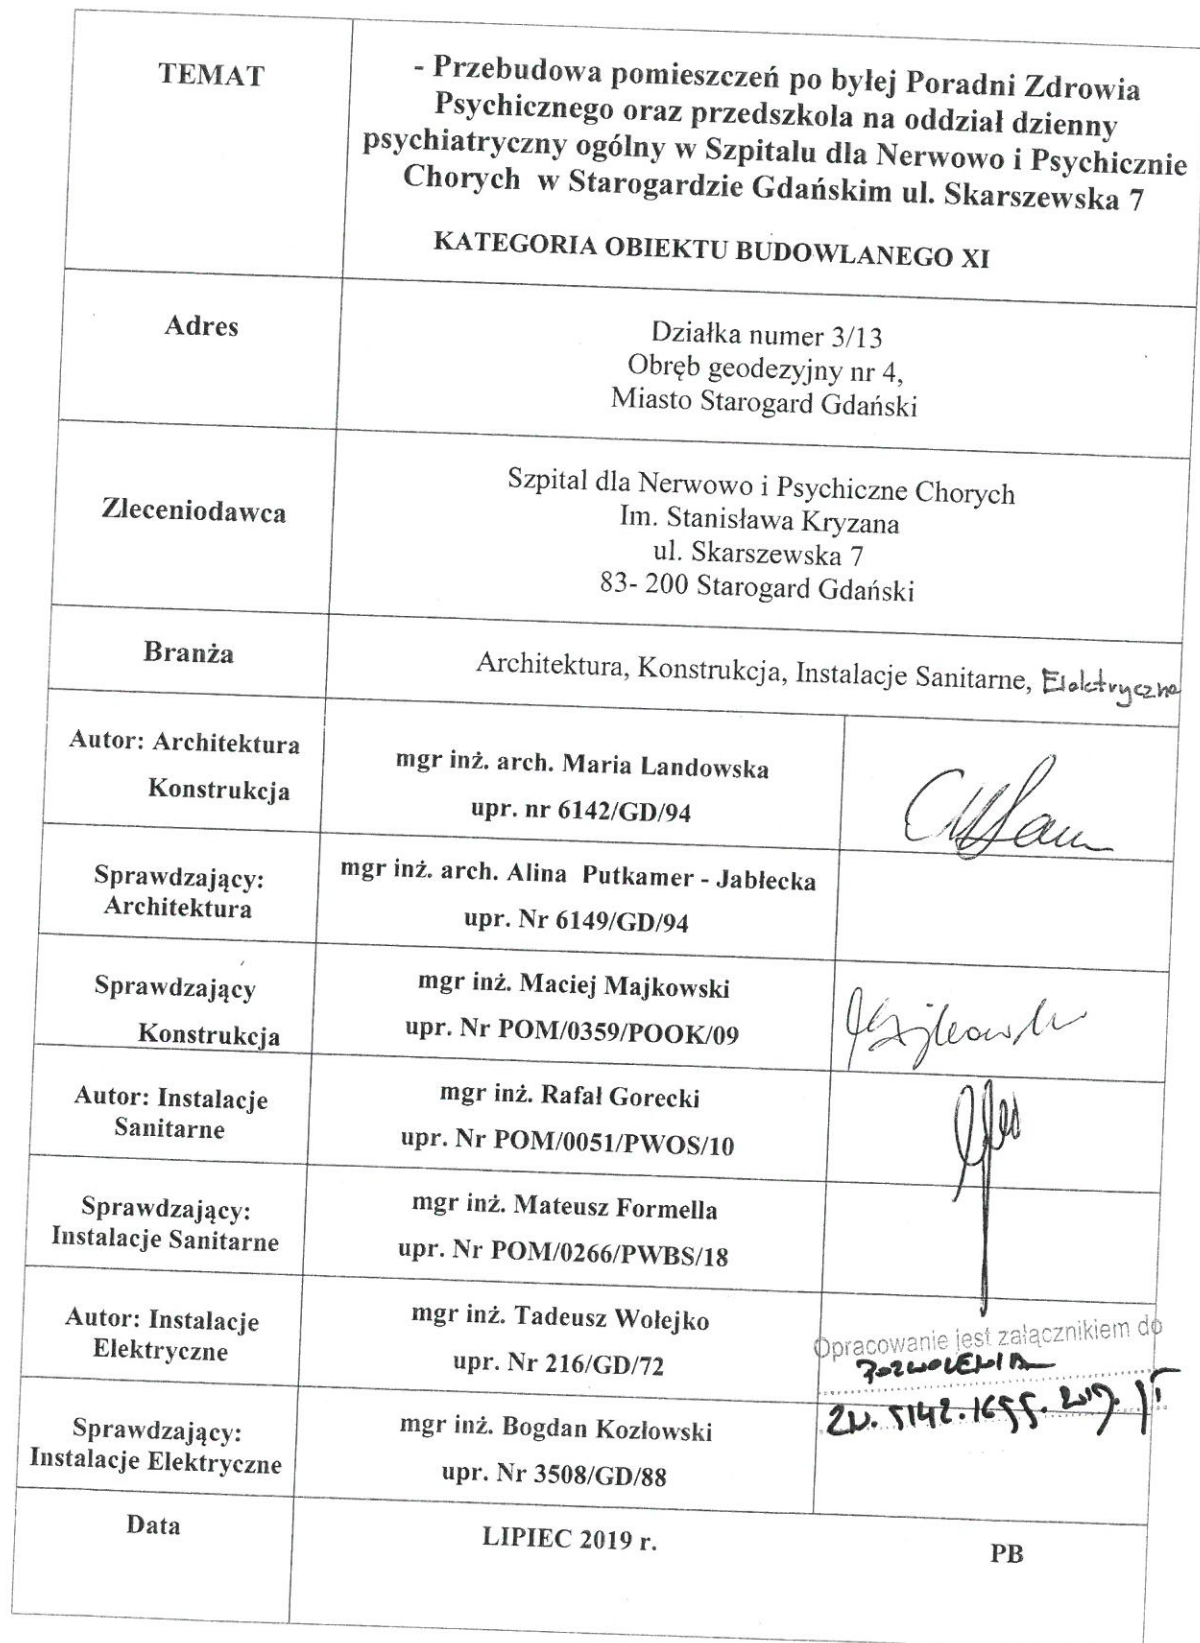 TEMAT
- Przebudowa pomieszczeń po byłej Poradni Zdrowia
Psychicznego oraz przedszkola na oddział dzienny
psychiatryczny ogólny w Szpitalu dla Nerwowo i Psychicznie
Chorych w Starogardzie Gdańskim ul. Skarszewska 7
KATEGORIA OBIEKTU BUDOWLANEGO XI
Adres
Działka numer 3/13
Obręb geodezyjny nr 4,
Miasto Starogard Gdański
Zleceniodawca
Szpital dla Nerwowo i Psychiczne Chorych
Im. Stanisława Kryzana
ul. Skarszewska 7
83- 200 Starogard Gdański
Branża
Architektura, Konstrukcja, Instalacje Sanitarne, Elektryczne
Autor: Architektura
Konstrukcja
mgr inż. arch. Maria Landowska
upr. nr 6142/GD/94
Sprawdzający:
Architektura
mgr inż. arch. Alina Putkamer - Jabłecka
upr. Nr 6149/GD/94
Sprawdzający
Konstrukcja
mgr inż. Maciej Majkowski
upr. Nr POM/0359/POOK/09
Autor: Instalacje
Sanitarne
mgr inż. Rafał Gorecki
upr. Nr POM/0051/PWOS/10
Sprawdzający:
Instalacje Sanitarne
mgr inż. Mateusz Formella
upr. Nr POM/0266/PWBS/18
Autor: Instalacje
Elektryczne
mgr inż. Tadeusz Wołejko
upr. Nr 216/GD/72
Opracowanie jest załącznikiem do
POZWOLENIA
Sprawdzający:
Instalacje Elektryczne
mgr inż. Bogdan Kozłowski
upr. Nr 3508/GD/88
Data
LIPIEC 2019 r.
PB